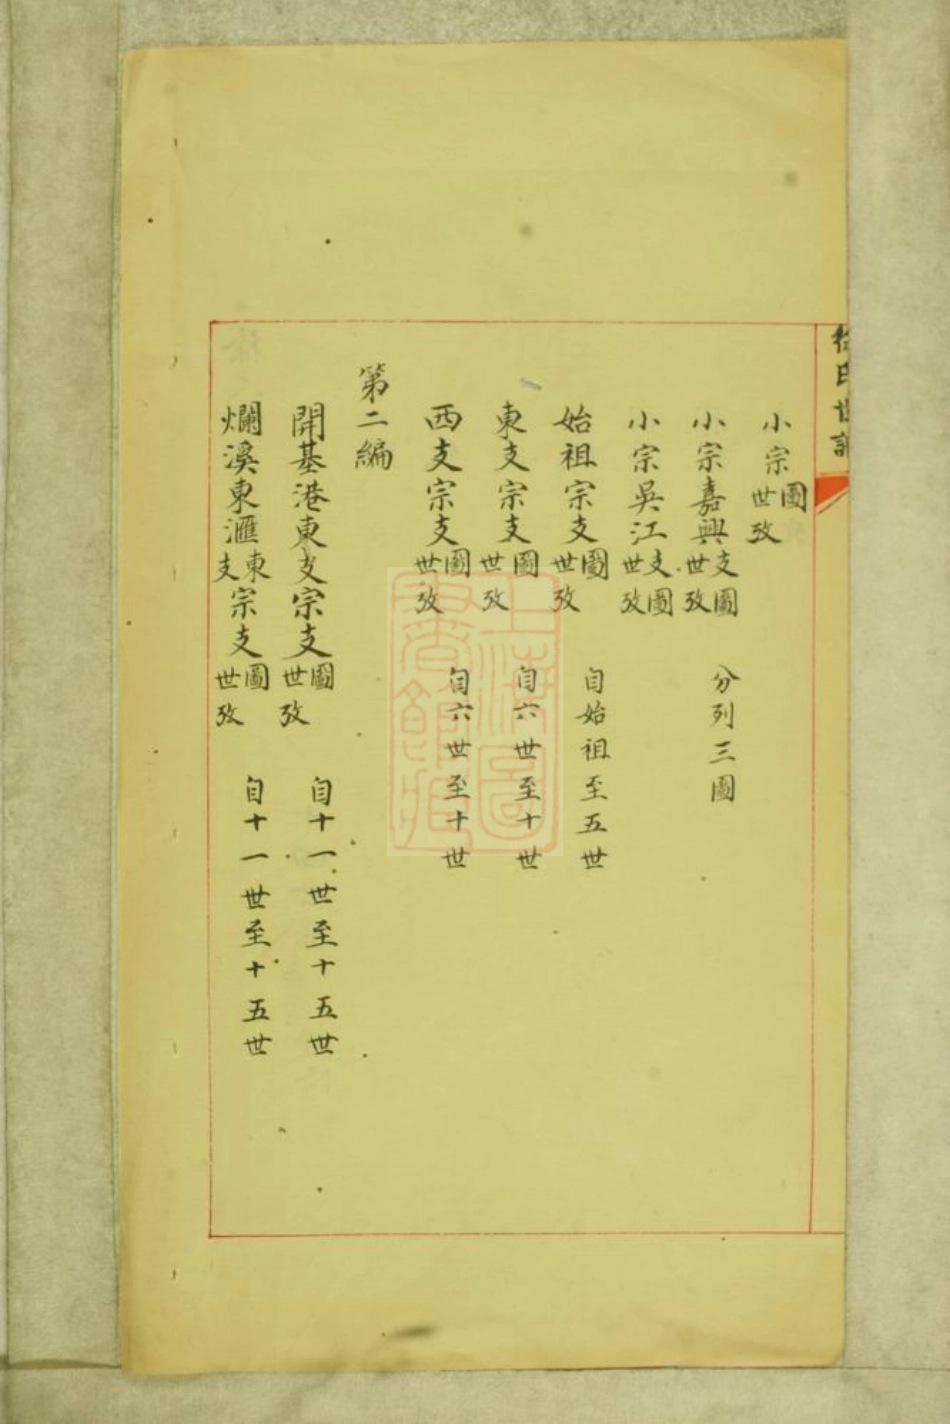 徐氏世譜
小宗圖世攷
小宗嘉興支圖世攷 分列三圖
小宗吳江支圖世攷
始祖宗支圖世攷 自始祖至五世
東支宗支圖世攷 自六世至十世
西支宗支圖世攷 自六世至十世
第二編
開基港東支宗支圖世攷 自十一世至十五世
爛溪東滙東支宗支圖世攷 自十一世至十五世